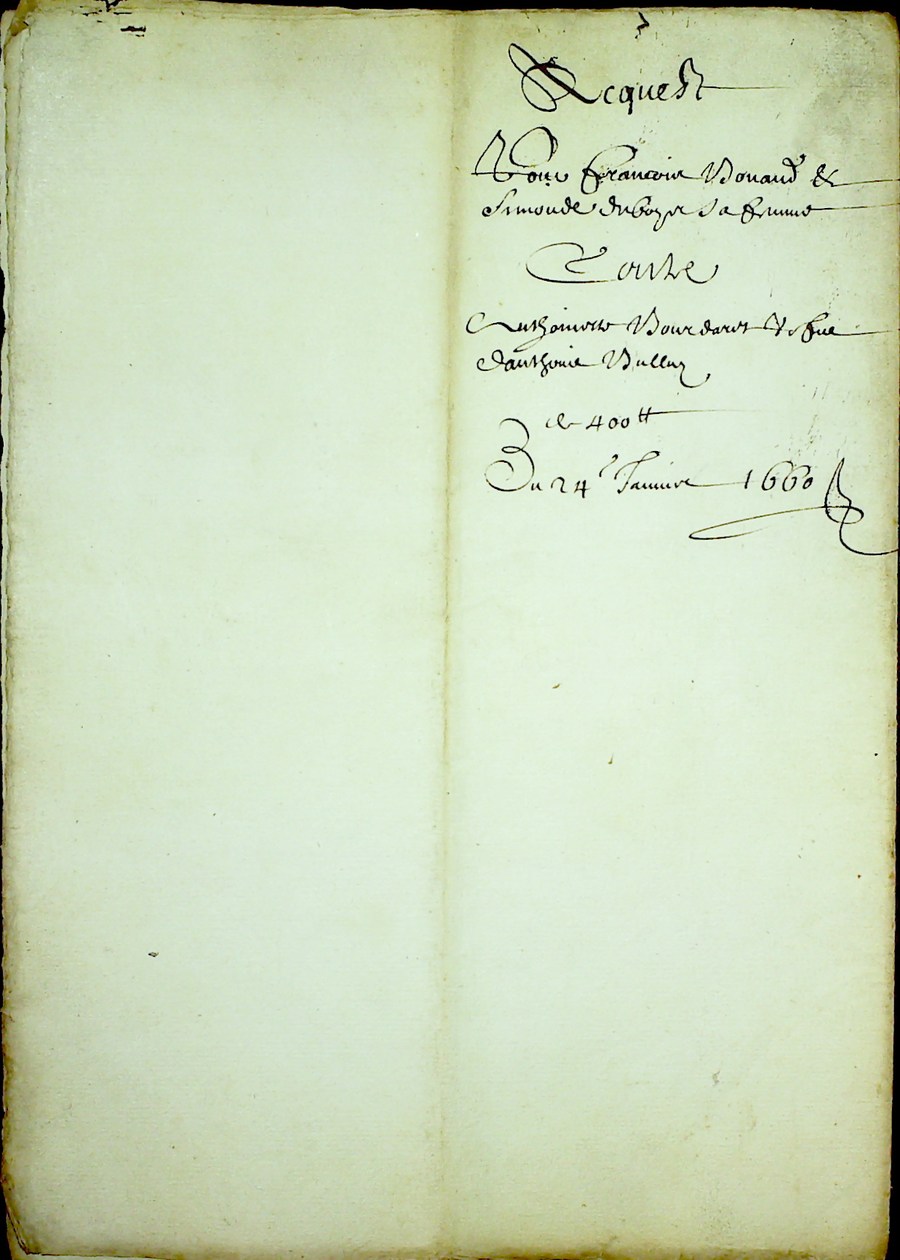 Requeste
Pour francois Bonaud &
Simonde duboys sa femme
Contre
Anthoinette Bourdaret Vefue
d'anthoine Bulluz
de 400tt
Du 24e Januier 1660